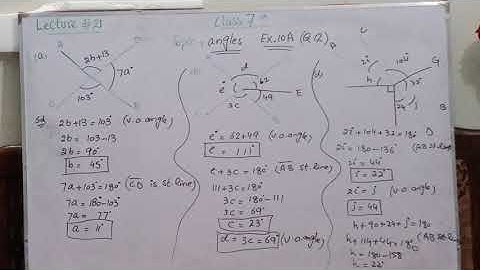 Lecture #21
Class 7
Topic: angles Ex.10A (Q12)
(a)
A
2b+13
7a
103°
Sol
2b+13=103° (v.o.angle)
2b = 103-13
2b = 90°
b = 45°
7a+103°=180° (CD is st.line)
7a = 180°-103°
7a = 77°
a = 11°
d
62
e
49
3c
E
e° = 62+49 (v.o.angle)
e = 111°
e + 3c = 180° (AB st.line)
111+3c = 180°
3c = 180°-111
3c = 69°
c = 23°
d = 3c = 69° (v.o.angle)
2i
104
G
h
32°
24
j
B
2i+104+32=180°
2i=180-136° (AB st.line)
2i = 44°
i = 22°
2i = j (v.o.angle)
j = 44
h+90+24+j=180
h+114+44=180° (AB st.line)
h = 180-158
h = 22°